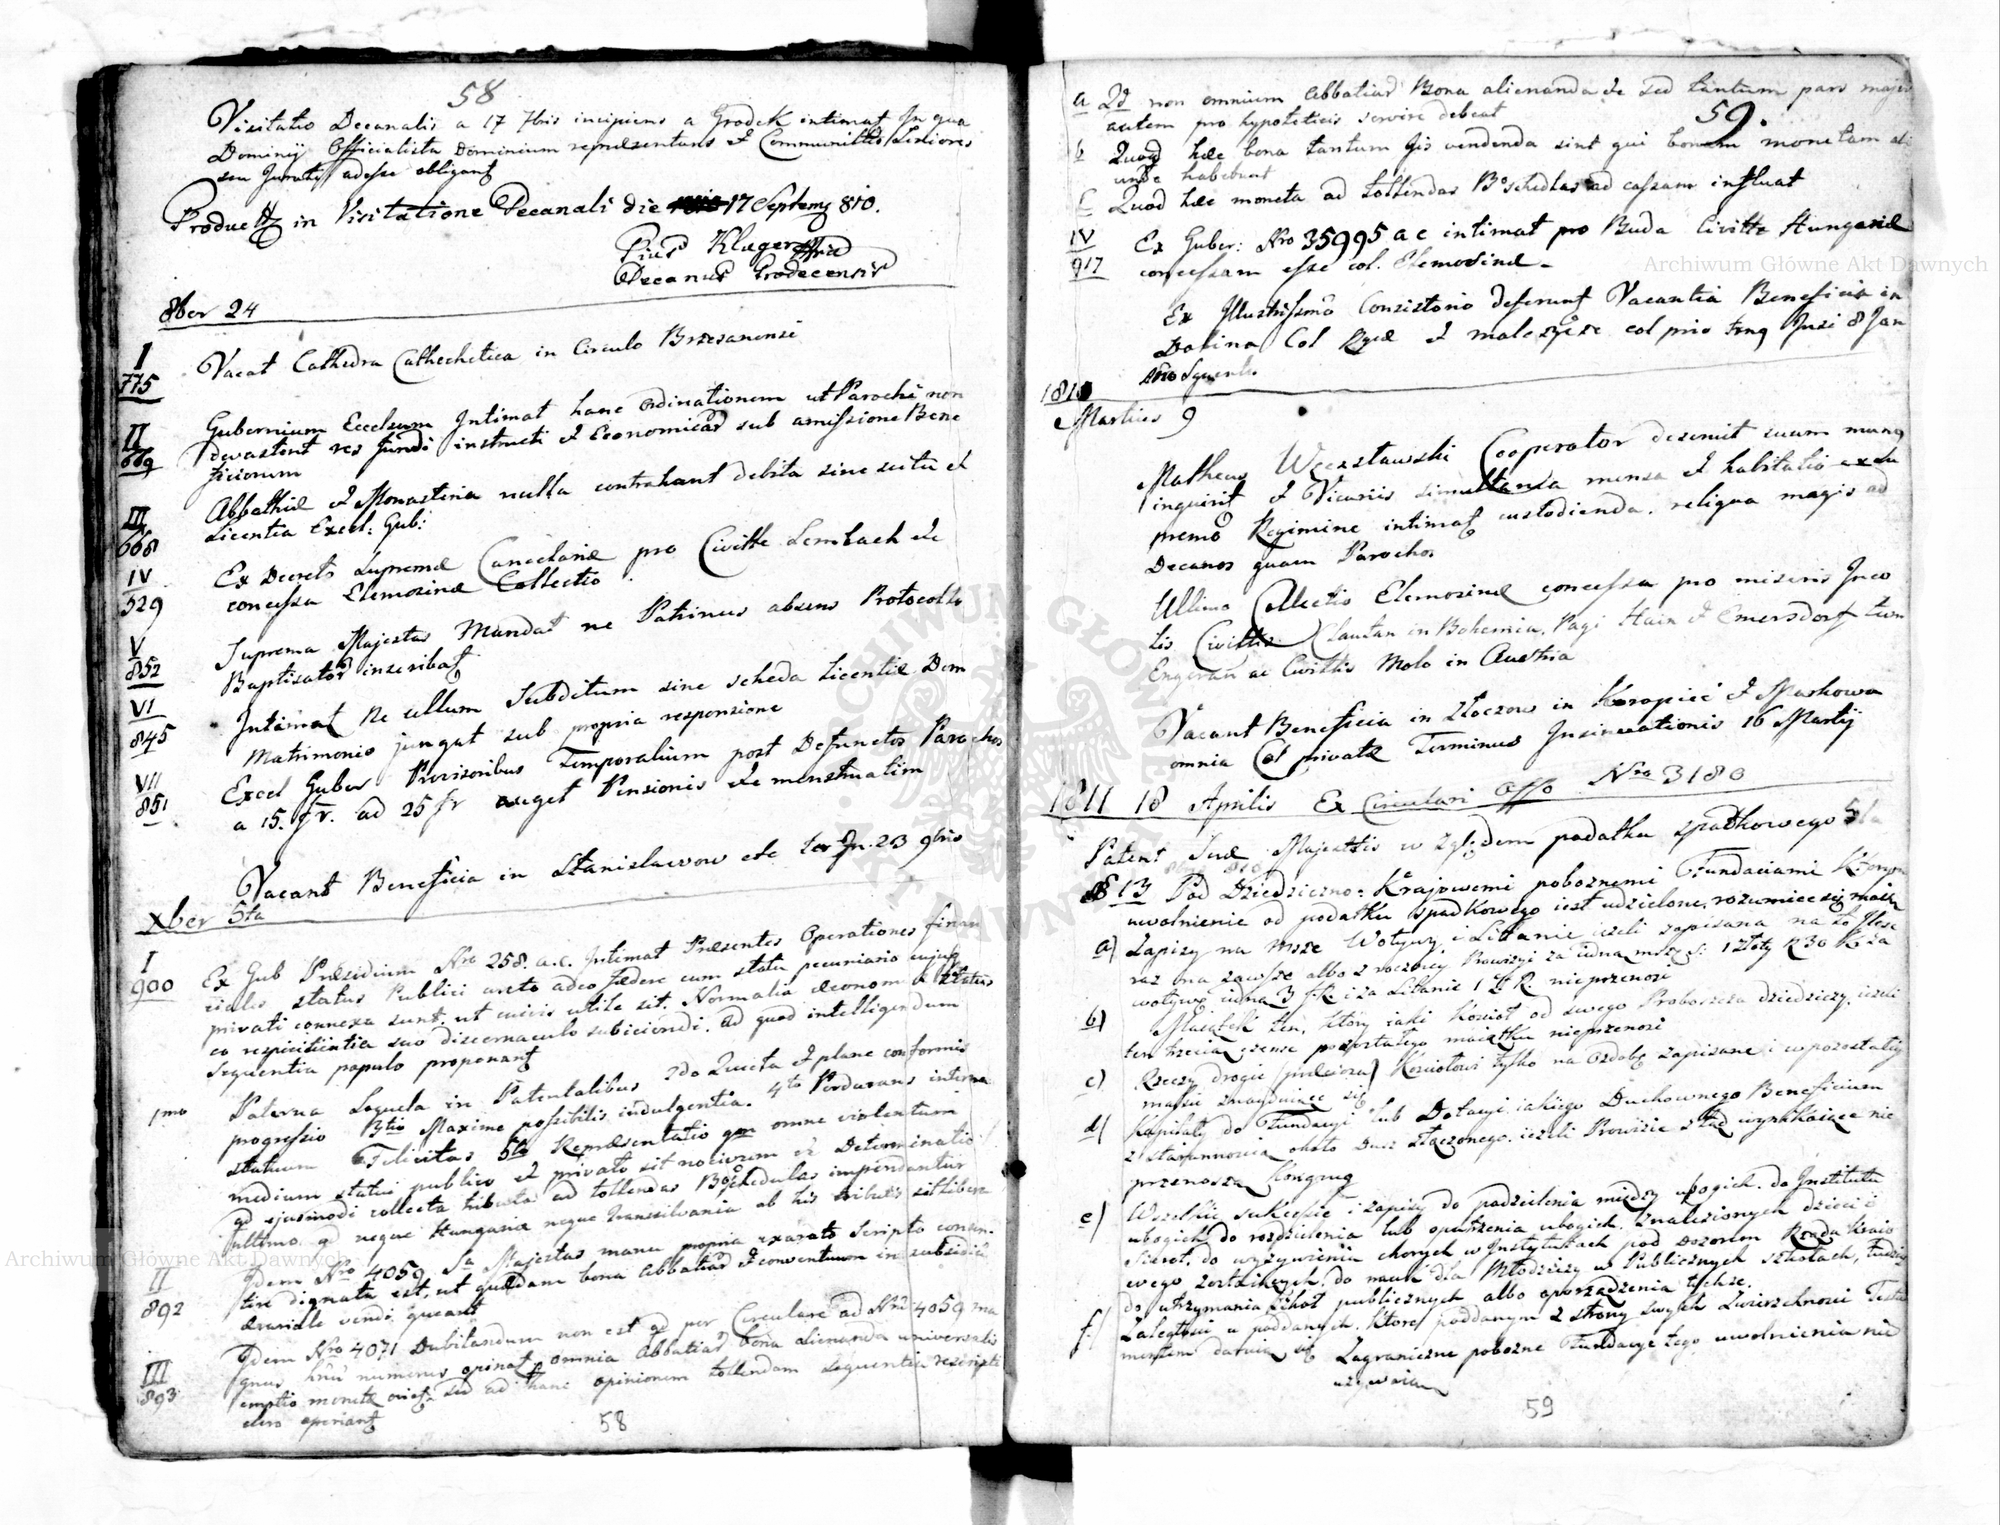 58
Visitatio Decanalis a 17 7bris incipiens a Grodek intimat In qua
Dominij Officialista Dominium repraesentans et Communitatis Seniores
seu Jurati adesse obligant
Product in Visitatione Decanali die 17 Septemb 810.
Pius Kluger
Decanus Grodecensis
8ber 24
I
775
Vacat Cathedra Cathechetica in Circulo Brzezanensi
II
669
Gubernium Excelsum Intimat hanc ordinationem ut Parochi non
devastent res fundi instructi et Economicas sub amissione Bene
ficiorum
III
668
Abbathiae et Monasteria nulla contrahant debita sine scitu et
Licentia Excel: Gub:
IV
529
Ex Decreto Supremae Cancelariae pro Civitte Lembach etc
concessa Elemosinae Collectio
V
852
Suprema Majestas Mandat ne Patrinus absens Protocollo
Baptisator inscribat
VI
845
Intimat Ne ullum Subditum sine scheda Licentiae Dom
Matrimonio jungat sub propria responsione
VII
851
Excel Guber Provisoribus Temporalium post Defunctos Parochos
a 15. fr. ad 25 fr auget Pensionis etc menstruatim
Vacant Beneficia in Stanislawow etc Ter In. 23 9bris
Xber 5ta
I
900
Ex Gub Praesidium Nro 258. a.c. Intimat Praesentes Operationes finan
ciales status Publici arcto adeo foedere cum statu pecuniario cujusq
privati connexa sunt, ut cuivis utile sit. Normalia oeconom status
eo respicientia suo discernaculo subiciendi. ad quod intelligendum
sequentia populo proponant
1mo
Paterna Loquela in Patentalibus 2do Quieta et plane conformis
progressio 3tio Maxime possibilis indulgentia. 4to Perdurans interna
statuum Felicitas 5to Repraesentatio qm omne violentum
medium statui publico et privato sit nocivum Determinatio
qd ejusmodi collecta tributa ad tollendas Bo schedulas impendantur
ultimo. qd neque Hungaria neque Transsilvania ab his tributis sit libera
II
892
Idem Nro 4059 Sa Majestas manu propria exarato Scripto conan
tire dignata est, ut quaedam bona Abbatiar et conventuum in subsidiu
Aerariale vendi queant
III
893
Idem Nro 4071 Dubitandum non est qd per Circulare ad Nru 4059 ma
gnus numerus opinat omnia Abbatiar bona alienanda universalis
emptio moneta sed ad hanc opinionem tollendam sequentia rescripti
clero aperiant
58
59.
a 2d non omnium Abbatiar Bona alienanda etc sed tantum pars major
autem pro hypotheticis servire debeat
b Quod haec bona tantum his vendenda sint qui bonam monetam ali
unde habebunt
c Quod haec moneta ad tollendas Bo schedlas ad cassam influat
IV
917
Ex Guber: Nro 35995 a c intimat pro Buda Civitte Hungariae
concessam esse col. Elemosinae
Ex Illustrissmo Consistorio deferunt Vacantia Beneficia in
Dolina Col Rgiae et male col priv Ferg Insi 8 Jan
Ao Sequentis
1810
Martius 9
Matheus Cooperator deseruit suum munq
inquirit et Vicariis simultanea mensa et habitatio exsu
premo Regimine intimat custodienda. reliqua magis ad
Decanos quam Parochos
Ultimo Collectio Elemosinae concessa pro miseris Inco
lis Civittis Clautan in Bohemia, Pagi Hain et Emersdorf tum
Engerau ac Civittis Molo in Austria
Vacant Beneficia in Złoczow in Koropiec et Markowa
omnia Col privatae Terminus Insinuationis 16 Martij
1811 18 Aprilis Ex Circulari Offo Nro 3180
Patent Suae Majestatis w zględem podatku spadkowego
§ 13 Pod Dziedziczno-Krajowemi pobożnemi Fundaciami Którym
uwolnienie od podatku spadkowego iest udzielone, rozumieć się maią
a) Zapisy na Msze Wotywy i Litanie ieżeli zapisana na to Ilosc
raz na zawsze albo z roczney Prowizyi za iedną mszę S: 1 Złoty R 30 Kr za
wotywę iedną 3 f.R i za Litanie 1 Zł R. nieprzenosi
b) Maiątek ten, który iaki Kościoł od swego Proboszcza dziedziczy, ieżeli
ten trzecią część pozostałego maiątku nieprzenosi
c) Rzeczy drogie (pretiosa) Kościołowi tylko na Ozdobę zapisane, i w pozostałey
massie znayduiące się
d) Kapitały do Fundacyi lub Dotacyi iakiego Duchownego Beneficium
z starannością około Dusz złączonego, ieżeli Prowizie stąd wynikaiące nie
przenoszą Kongruę
e) Wszelkie sukcessie i zapisy do podzielenia między ubogich. do Instytutu
ubogich do rozdzielenia lub opatrzenia ubogich, Znalezionych dzieci i
Sierot, do wyżywienia chorych w Instytutach pod Dozorem Rządu Kraio
wego zostaiących, do nauk dla Młodzieży w Publicznych szkołach, tudzież
do utrzymania Szkoł publicznych albo oporządzenia tychże.
f) Zaległosci u poddanych, które poddanym z strony swych Zwierzchnosci Testa
mentem daruią się Zagraniczne pobożne Fundacye tego uwolnienia nie
używaią
59
Archiwum Główne Akt Dawnych
Archiwum Główne Akt Dawnych
ARCHIWUM GŁÓWNE AKT DAWNYCH